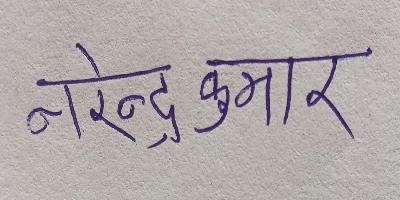 नरेन्द्र कुमार